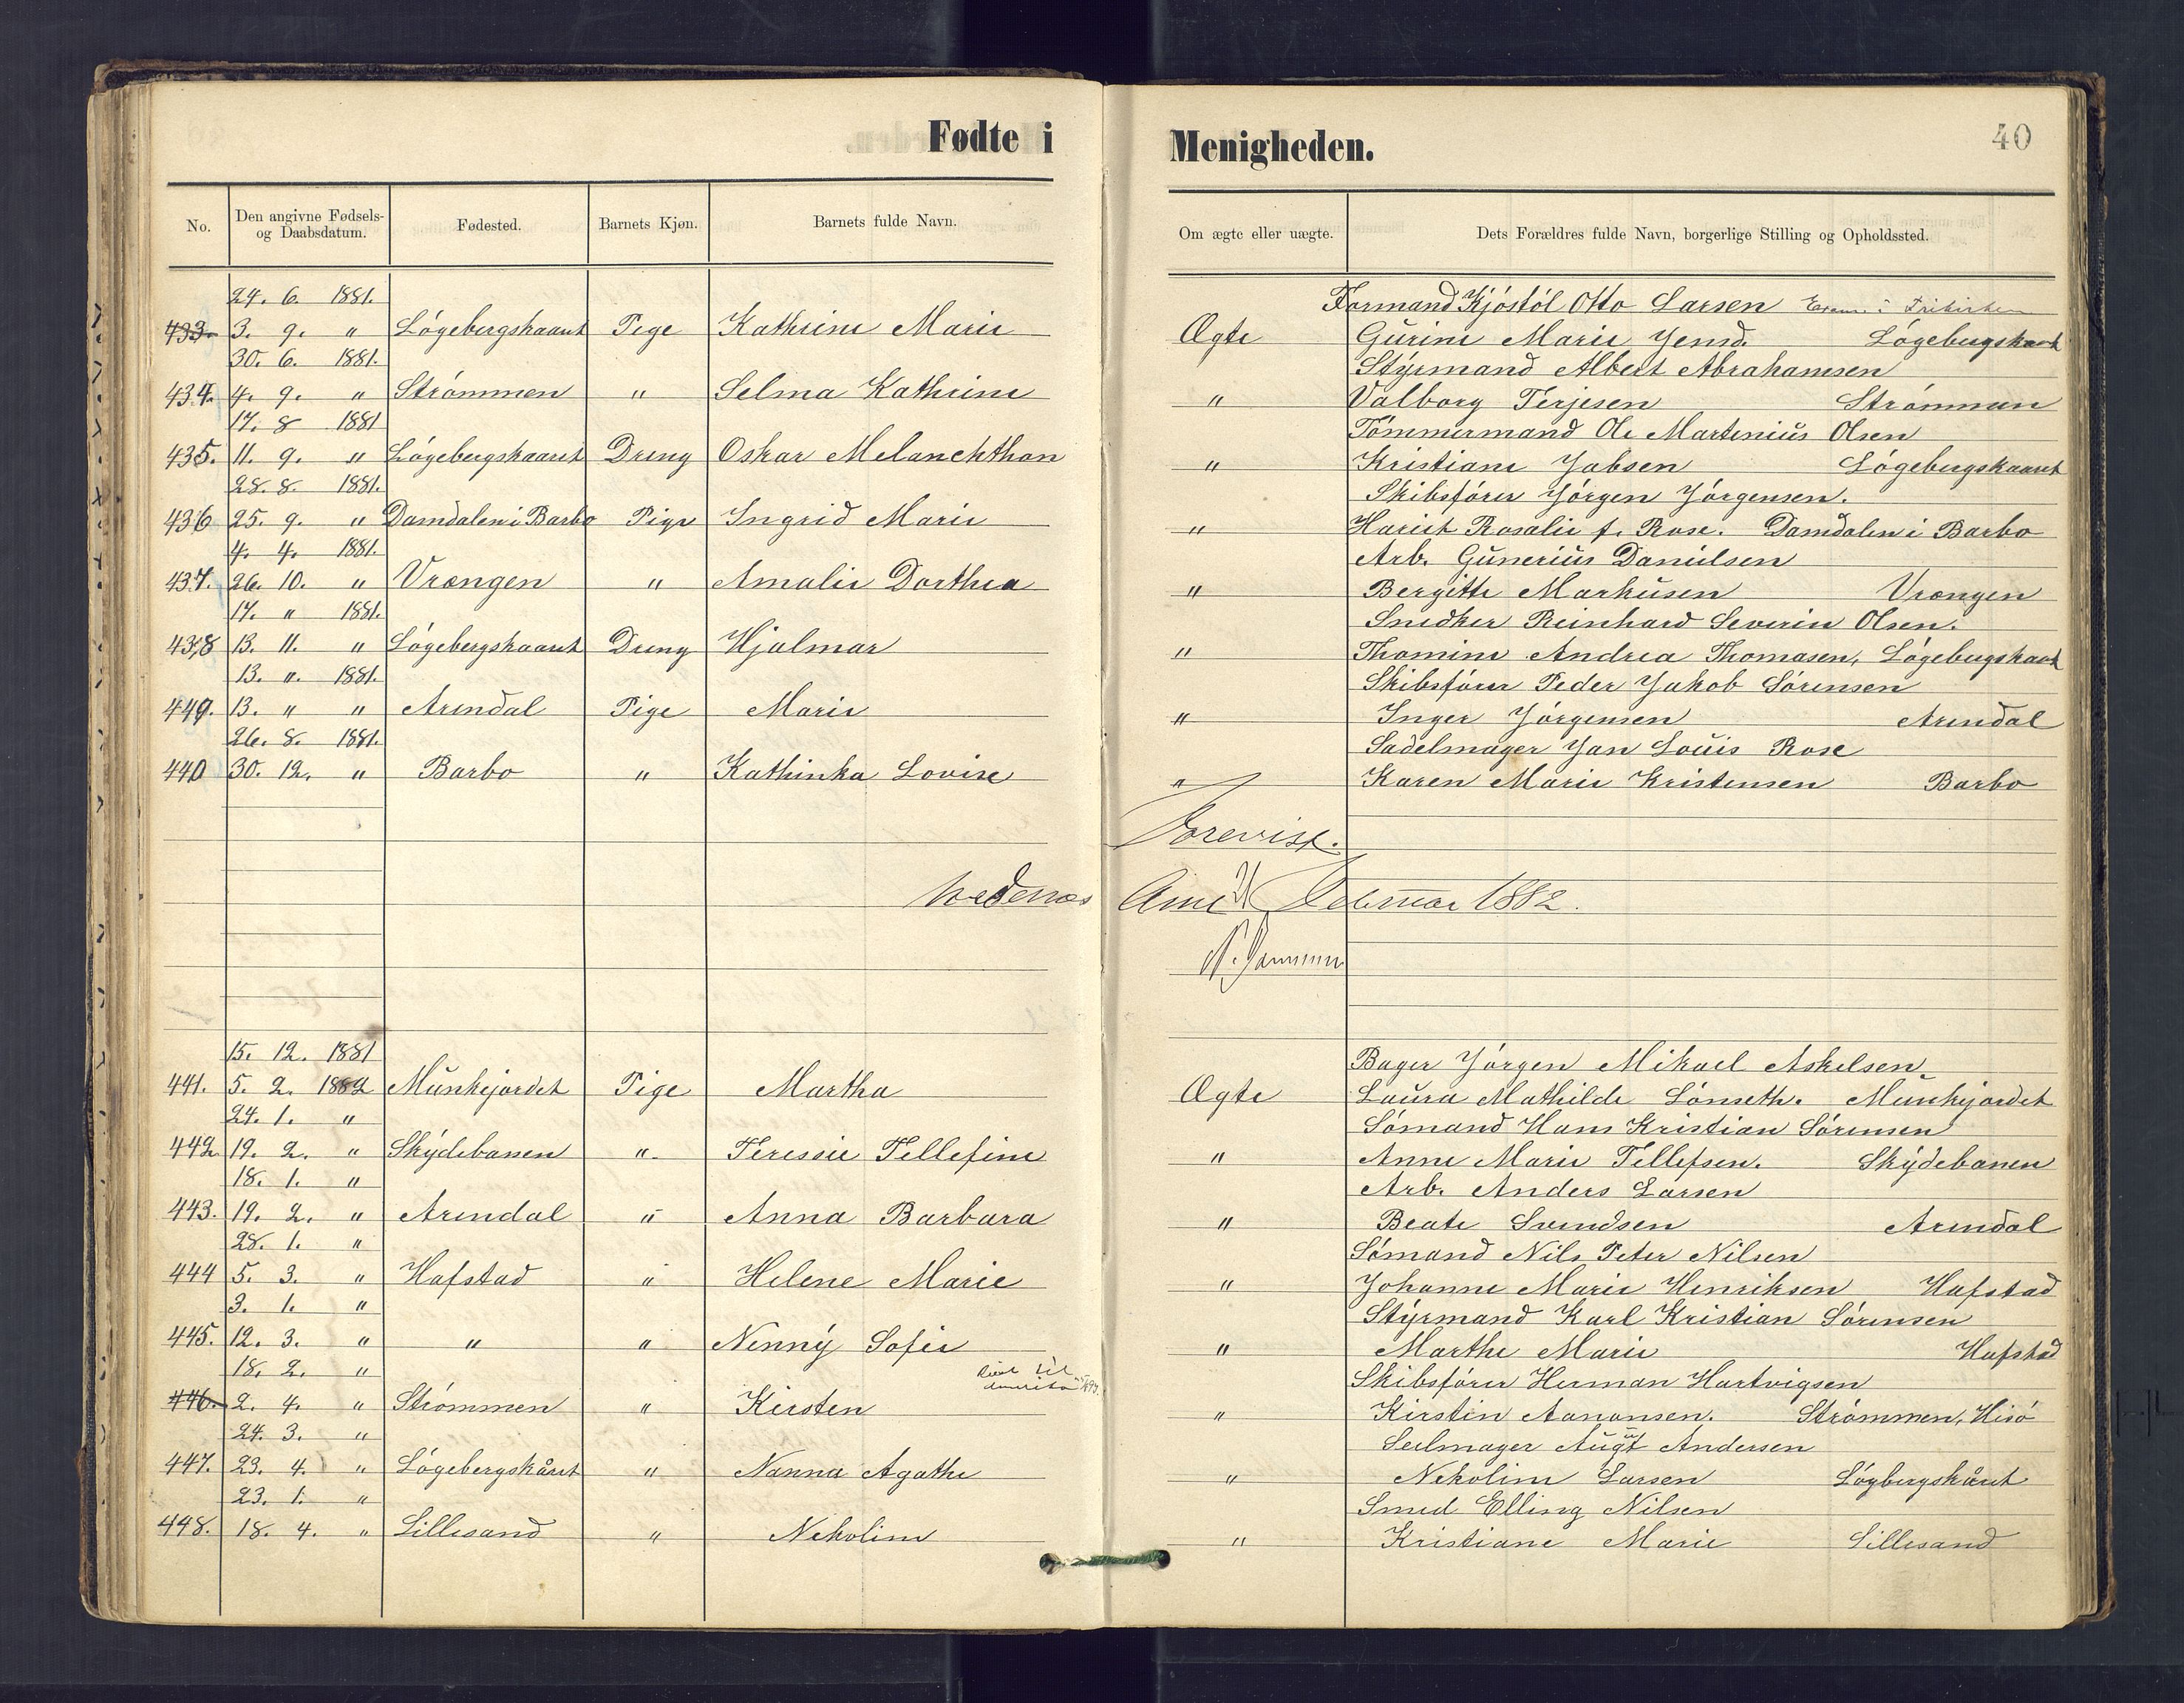 Fødte i Menigheden. 40
No. Den angivne Fødsels- og Daabsdatum. Fødested. Barnets Kjøn. Barnets fulde Navn. Om ægte eller uægte. Dets Forældres fulde Navn, borgerlige Stilling og Opholdssted.
24. 6. 1881. Formand Kjøstól Otto Larsen
433. 3. 9. " Lógebergskaaret Pige Kathrine Marie Ægte Gurine Marie Lógebergskaaret
30. 6. 1881. Styrmand Albert Abrahamsen
434. 4. 9. " Strømmen " Selma Kathrine " Valborg Terjesen Strømmen
17. 8 1881 Tømmermand Ole Martinius Olsen
435. 11. 9. " Lógebergskaaret Dreng Oskar Melanchthon " Kristiane Jabsen Lógebergskaaret
28. 8. 1881. Skibsfører Jørgen Jørgensen.
436 25. 9. " Damdalen i Barbo Pige Ingrid Marie " Hariet Rosalie f. Rose. Damdalen i Barbo
4. 4. 1881. Arb. Gunerius Danielsen
437. 26. 10. " Vrængen " Amalie Dorthea " Bergitte Markusen Vrængen
17. " 1881. Snedker Reinhard Severin Olsen.
438 13. 11. " Lógebergskaaret Dreng Hjalmar " Thomine Andrea Thomasen, Lógebergskaaret
13. ". 1881. Skibsfører Peder Jakob Sørensen
449. 13. " " Arendal Pige Marie " Inger Jørgensen Arendal
26. 8. 1881. Sadelmager Jan Louis Rose
440 30. 12. " Barbo " Kathinka Lovise " Karen Marie Kristensen Barbo
Forevist.
Nedenæs Amt Februar 1882.
15. 12. 1881 Bager Jørgen Mikael Askelsen
441. 5. 2. 1882 Munkejordet Pige Martha Ægte Laura Mathilde Lønseth. Munkejordet
24. 1. " Sømand Hans Kristian Sørensen
442 19. 2. " Skydebanen " Teressie Tellefine " Anne Marie Tellefsen. Skydebanen
18. 1. " Arb. Anders Larsen
443. 19. 2. " Arendal " Anna Barbara " Beate Svendsen Arendal
28. 1. " Sømand Nils Peter Nilsen
444 5. 3. " Hafstad " Helene Marie " Johanne Marie Henriksen Hafstad
3. 1. " Styrmand Karl Kristian Sørensen
445. 12. 3. " " " Nenny Sofie " Marthe Marie Hafstad
18. 2. " Skibsfører Herman Hartvigsen
446. 2. 4. " Strømmen " Kirsten " Kirstin Aanonsen. Strømmen, Hisø
24. 3. " Seilmager Augst Andersen
447. 23. 4. " Lógebergskåret " Nanna Agathe " Nekoline Larsen Lógbergskåret
23. 1. " Smed Elling Nilsen
448. 18. 4. " Lillesand " Nekoline " Kristiane Marie Lillesand